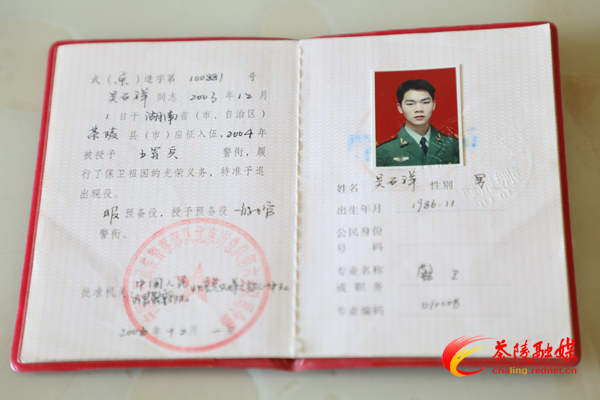 武（京）退字第 100881 号
吴石祥 同志 2003 年 12 月
1 日于 湖南 省（市、自治区）
茶陵 县（市）应征入伍，2004 年
被授予 上等兵 警衔，履
行了保卫祖国的光荣义务，特准予退
出现役。
服 预备役，授予预备役
警衔。
批准机关 中国人民
年 十二 月 一 日
姓名 吴石祥 性别 男
出生年月 1986.11
公民身份
号 码
专业名称
或职务
专业编码 010008
茶陵融媒
chaling.rednet.cn